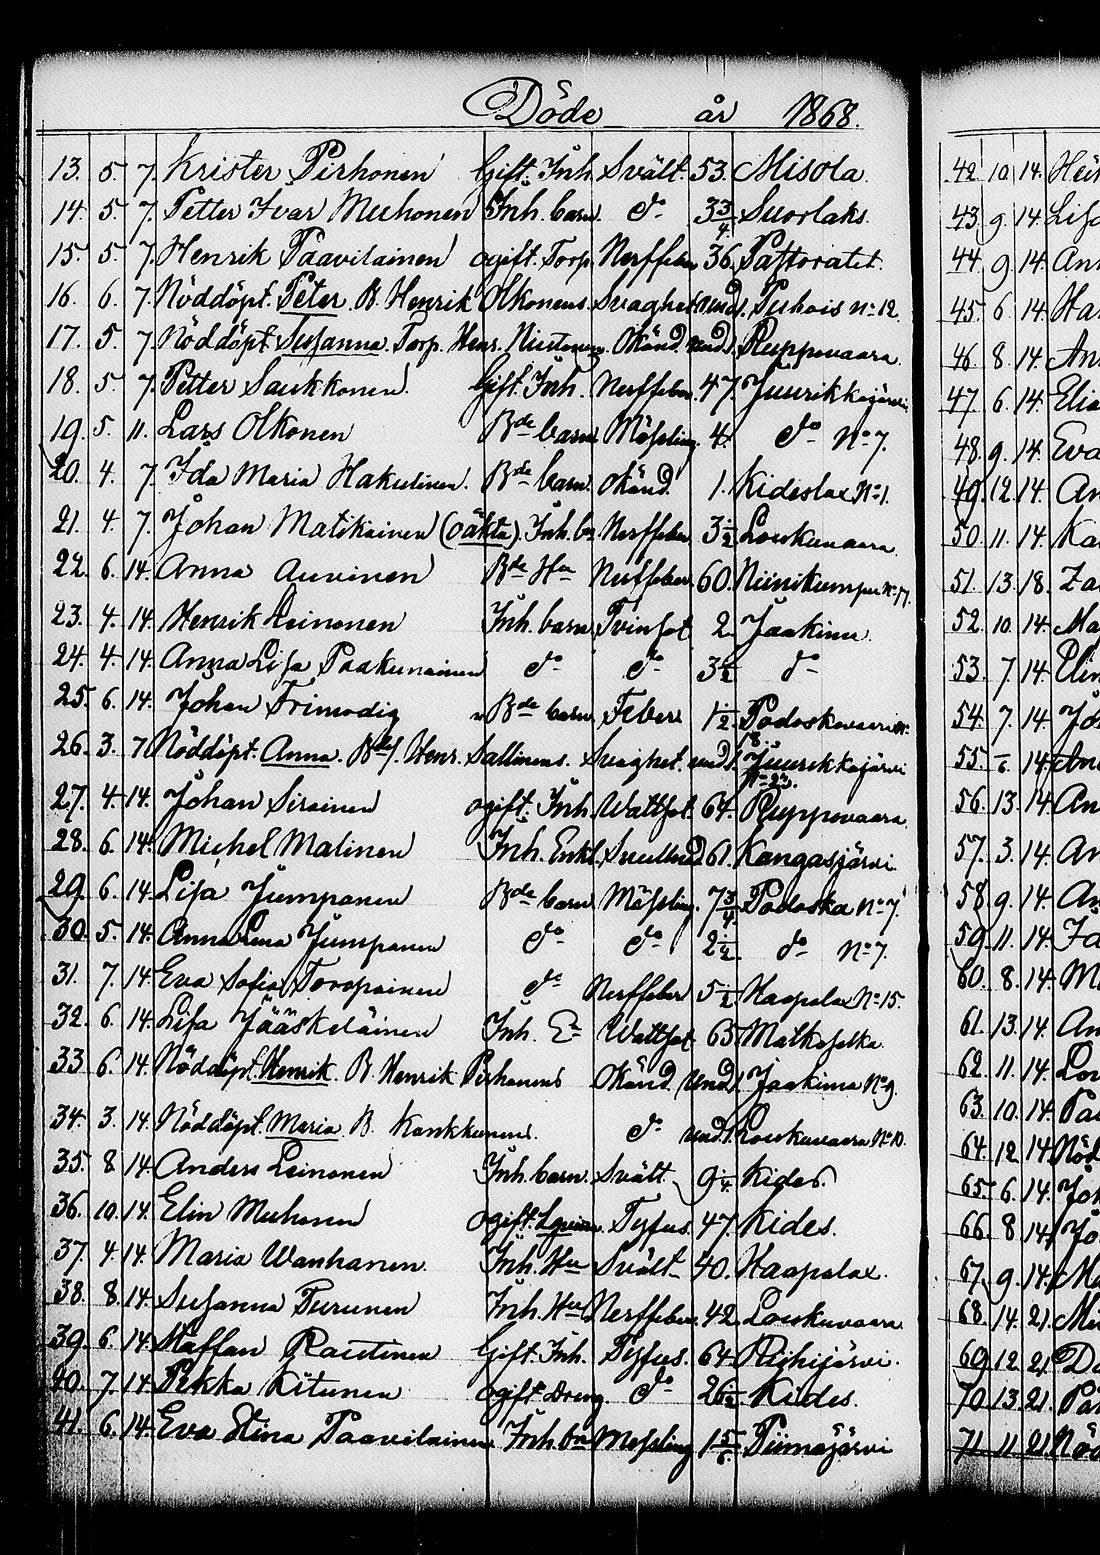 Döde år 1868.
13. 5. 7. Krister Pirhonen Gift. Inh. Svält. 53. Misola
14. 5. 7. Petter Ivar Muhonen Inh. barn d:o 3 3/4. Suorlaks.
15. 5. 7. Henrik Paavilainen ogift. Torp. Nerffeber 36. Pastoratet.
16. 6. 7. Nöddöpt. Peter. B. Henrik Olkonens. Svaghet und 1. Puhois No 12.
17. 5. 7. Nöddöpt Susanna. Torp. Henr. Okänd. und 1. Ruppovaara
18. 5 7. Petter Saukkonen. Gift. Inh. Nerffeber. 47. Juurikkajärvi
19. 5. 11. Lars Olkonen Bde barn. Mässling. 4. d:o No 7.
20. 4. 7. Ida Maria Hakulinen. Bde barn. Okänd. 1. Kideslax No 1.
21. 4. 7. Johan Matikainen (oäkta). Inh. bn Nerffeber 3 1/2 Loukuvaara
22. 6. 14. Anna Auvinen Bde Hu Nerffeber. 60. Niinikumpu No 17.
23. 4. 14. Henrik Leinonen Inh. barn. Tvinsot 2. Jaakima.
24. 4. 14. Anna Lisa Paakunainen d:o d:o 3 1/2 d:o
25. 6. 14. Johan Frimodig Bde barn. Feber 1 1/2. Podoskavaara No 8
26. 3. 7 Nöddöpt. Anna. Bdes. Henr. Sallinens. Svaghet. und 1. Juurikkajärvi No 23.
27. 4. 14. Johan Sirainen ogift. Inh. Wattsot. 64. Ruppovaara.
28. 6. 14. Michel Malinen Inh. Enkl. 61. Kangasjärvi
29. 6. 14. Lisa Jumpanen Bde barn. Mässling. 7 3/4. Podoska No 7.
30. 5. 14. Anna Lena Jumpanen d:o d:o 2 1/2. d:o No 7.
31. 7. 14. Eva Sofia Toropainen d:o Nerffeber 5 1/2 Haapalax No 15.
32. 6. 14. Lisa Jääskeläinen Inh. E:a Wattsot 63 Matkaselkä
33 6. 14. Nöddöpt. Henrik. B. Henrik Pirhonens Okänd. und 1. Jaakima No 9.
34. 3. 14. Nöddöpt. Maria. B. Konkkunens. d:o und 1. Loukuvaara No 10.
35. 8 14. Anders Leinonen Inh. barn. Svält. 9 1/4. Kides.
36. 10. 14. Elin Muhonen ogift. Tyfus. 47. Kides.
37. 4. 14. Maria Wanhanen. Inh. Hu Svält 40. Haapalax.
38. 8. 14. Susanna Turunen Inh. Hu Nerffeber. 42. Loukuvaara
39. 6. 14. Staffan Rautinen Gift. Inh. Tyfus. 64. Riihijärvi.
40. 7. 14. Pekka Kitunen ogift. Dreng. d:o 26 1/2. Kides.
41. 6. 14. Eva Stina Paavilainen Inh. bn Mässling 1 5/6. Piimäjärvi
42. 10. 14.
43. 9. 14. Lisa
44. 9. 14.
45. 6. 14.
46. 8. 14.
47. 6. 14.
48. 9. 14. Eva
49. 12. 14.
50. 11. 14.
51. 13. 18.
52. 10. 14.
53. 7. 14. Elin
54. 7. 14.
55. 6. 14.
56. 13. 14.
57. 3. 14.
58. 9. 14.
59. 11. 14.
60. 8. 14.
61. 13. 14.
62. 11. 14.
63. 10. 14.
64. 12 14.
65. 6. 14.
66. 8 14.
67. 9. 14.
68. 14. 21.
69. 12. 21.
70. 13. 21.
71. 11. 21.